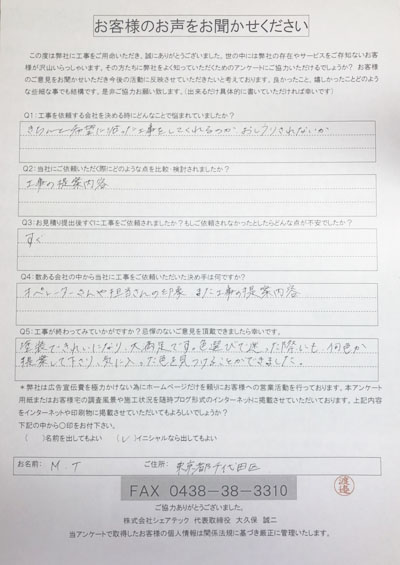 お客様のお声をお聞かせください
この度は弊社に工事をご用命いただき、誠にありがとうございました。世の中には弊社の存在やサービスをご存知ないお客
様が沢山いらっしゃいます。その方たちに弊社をよく知っていただくためのアンケートにご協力いただけるでしょうか？ お客様の
ご意見をお聞かせいただき今後の活動に反映させていただきたいと考えております。良かったこと、嬉しかったことどのよう
な些細な事でも結構です。是非ご協力お願い致します。（出来るだけ具体的に書いていただければ幸いです）
Q1：工事を依頼する会社を決める時にどんなことで悩まれていましたか？
きちんと希望に沿った工事をしてくれるのか、おしうりされないか
Q2：当社にご依頼いただく際にどのような点を比較・検討されましたか？
工事の提案内容
Q3：お見積り提出後すぐに工事をご依頼されましたか？もしご依頼されなかったとしたらどんな点が不安でしたか？
すぐ
Q4：数ある会社の中から当社に工事をご依頼いただいた決め手は何ですか？
オペレーターさんや担当さんの印象、また工事の提案内容
Q5：工事が終わってみていかがですか？忌憚のないご意見を頂戴できましたら幸いです。
塗装できれいになり、大満足です。色選びで迷った際いも、何色か
提案して下さり、気に入った色を見つけることができました。
＊弊社は広告宣伝費を極力かけない為にホームページだけを頼りにお客様への営業活動を行っております。本アンケート
用紙またはお客様宅の調査風景や施工状況を随時ブログ形式のインターネットに掲載させていただいております。上記内容
をインターネットや印刷物に掲載させていただいてもよろしいでしょうか？
下記の中から〇印をお付け下さい。
（ ）名前を出してもよい （レ）イニシャルなら出してもよい
お名前： M.T ご住所： 東京都千代田区
FAX 0438-38-3310
ご協力ありがとうございました。
株式会社シェアテック 代表取締役 大久保 誠二
当アンケートで取得したお客様の個人情報は関係法規に基づき厳正に管理いたします。